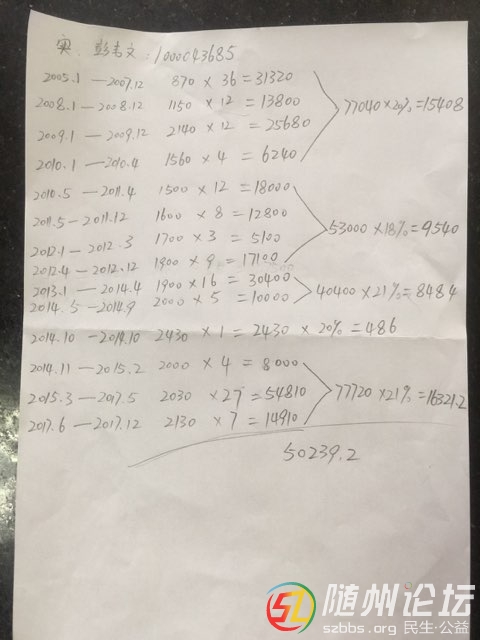 实 彭书文:1000043685
2005.1—2007.12 870 × 36 = 31320
2008.1—2008.12 1150 × 12 = 13800
77040 × 20% = 15408
2009.1—2009.12 2140 × 12 = 25680
2010.1—2010.4 1560 × 4 = 6240
2010.5—2011.4 1500 × 12 = 18000
2011.5—2011.12 1600 × 8 = 12800
53000 × 18% = 9540
2012.1—2012.3 1700 × 3 = 5100
2012.4—2012.12 1900 × 9 = 17100
2013.1—2014.4 1900 × 16 = 30400
40400 × 21% = 8484
2014.5—2014.9 2000 × 5 = 10000
2014.10—2014.10 2430 × 1 = 2430 × 20% = 486
2014.11—2015.2 2000 × 4 = 8000
2015.3—2017.5 2030 × 27 = 54810
77720 × 21% = 16321.2
2017.6—2017.12 2130 × 7 = 14910
50239.2
随州论坛
szbbs.org 民生·公益